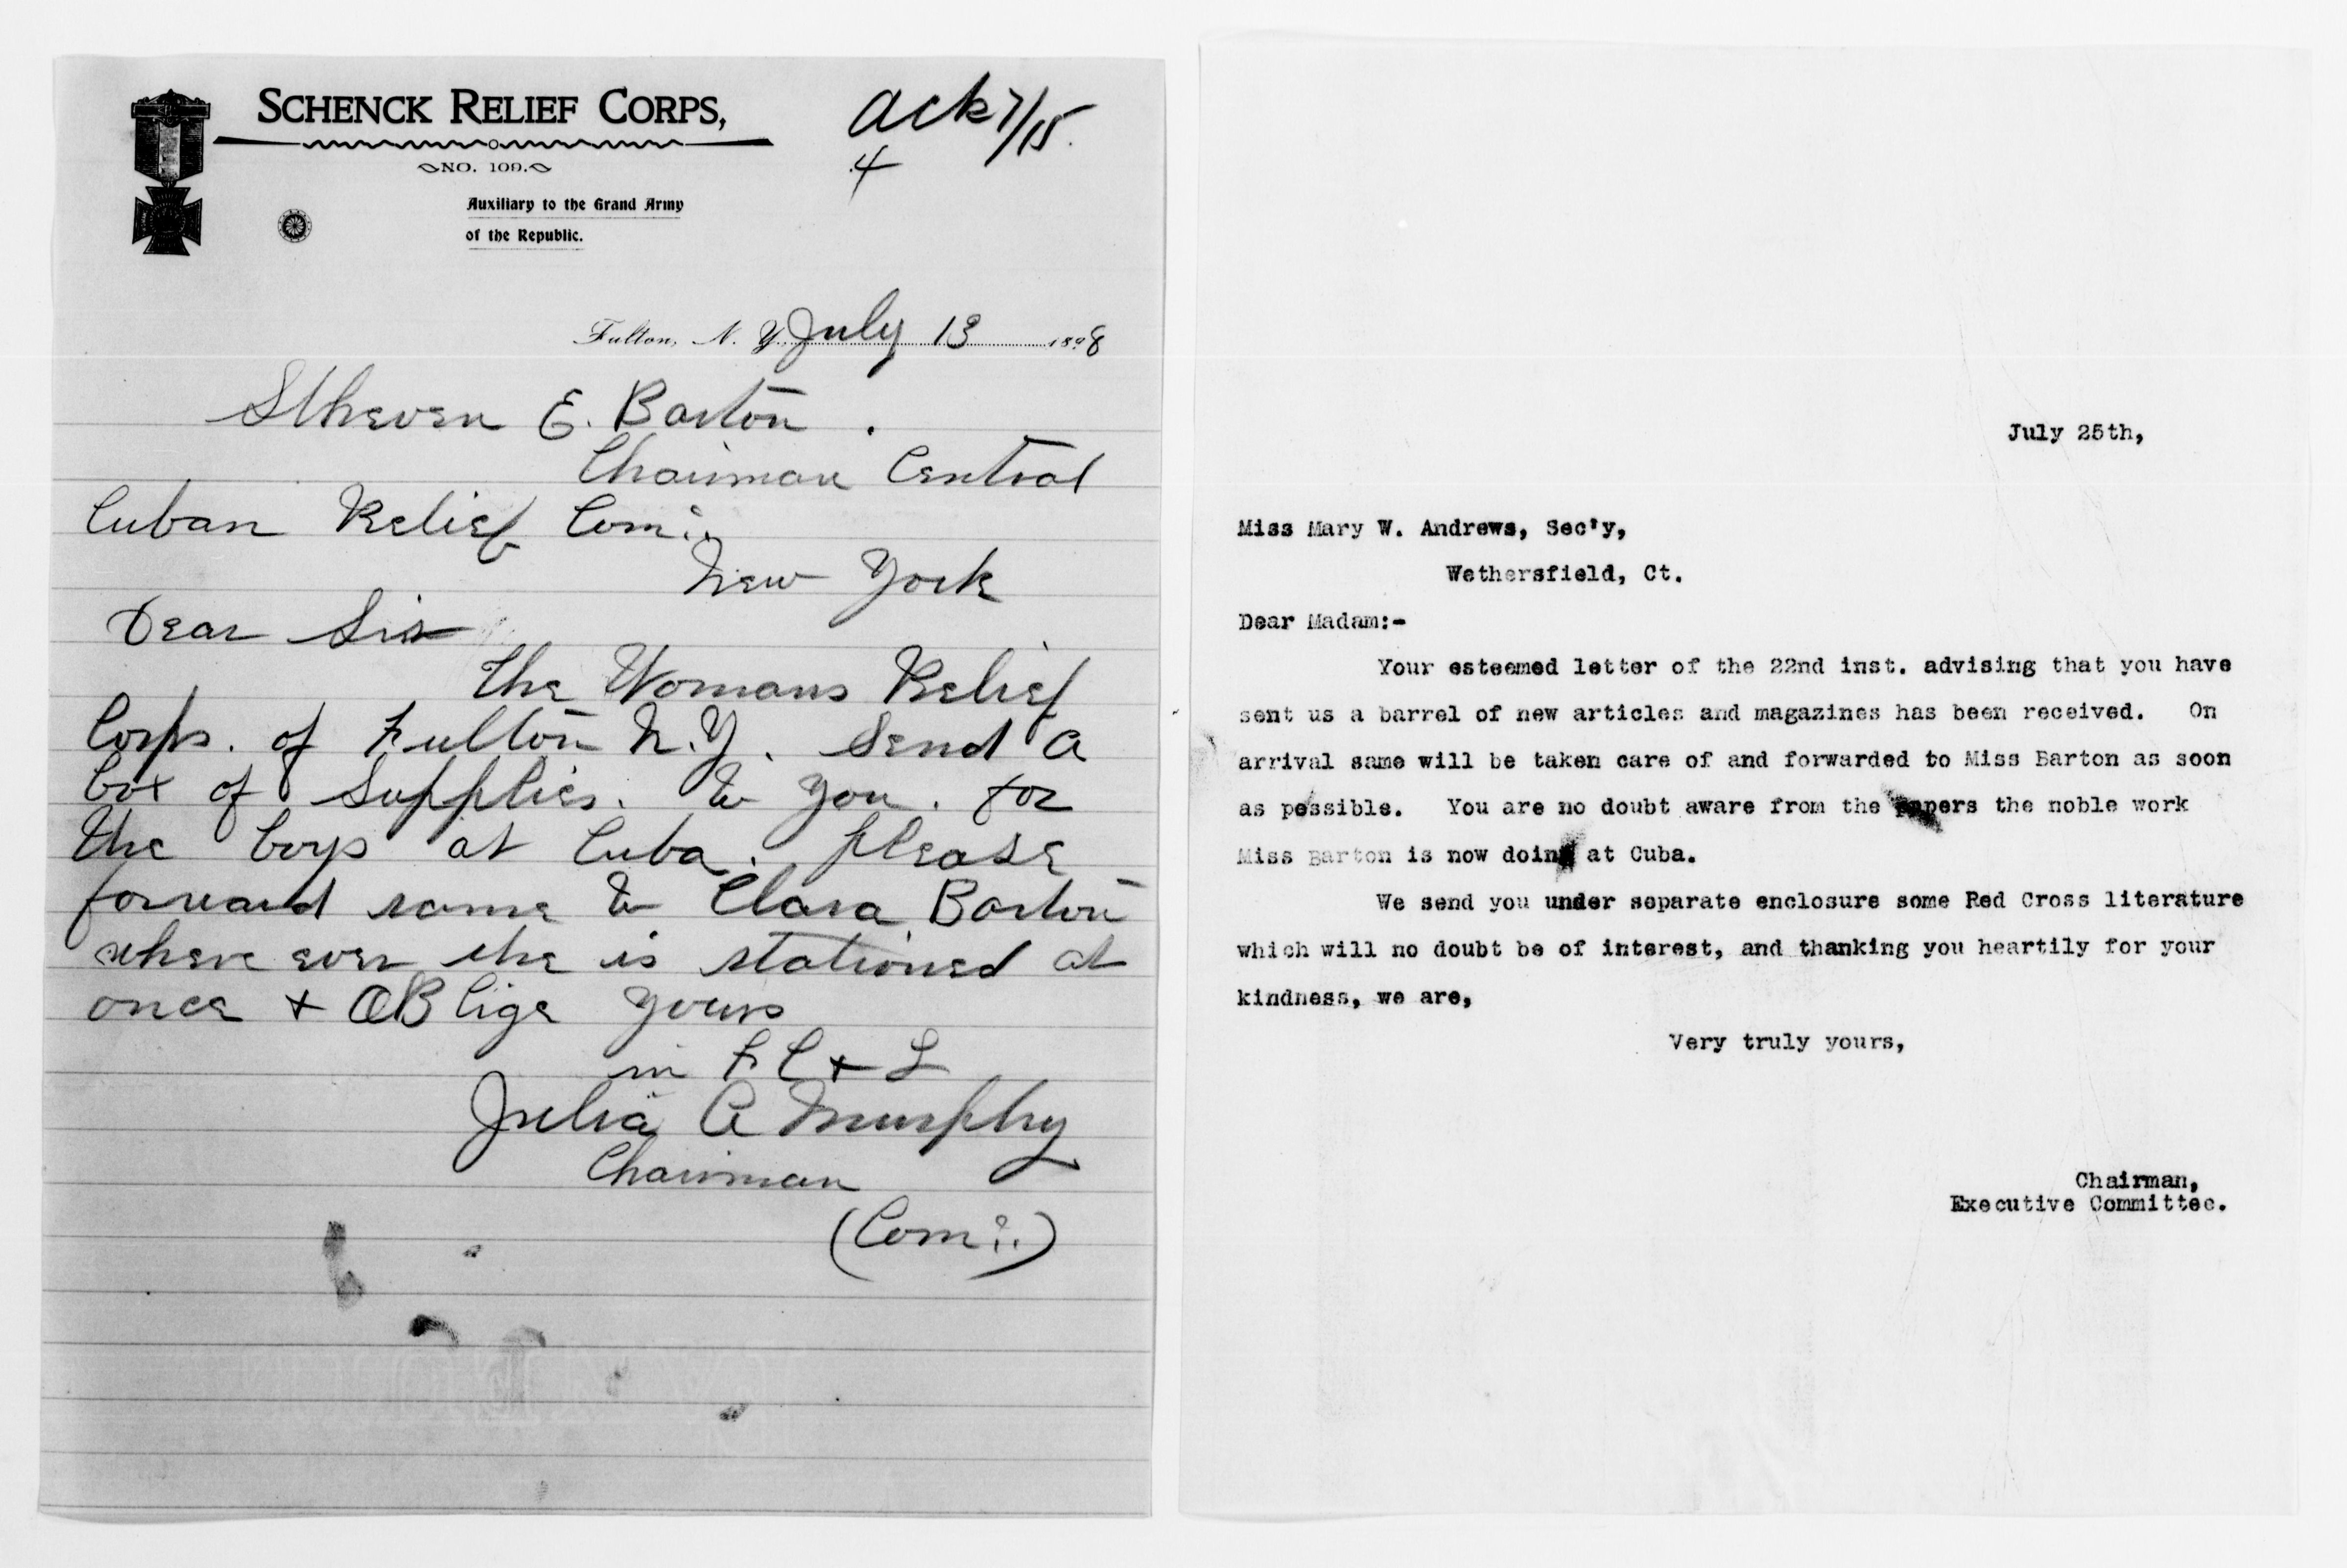 SCHENCK RELIEF CORPS,
NO. 109.
Auxiliary to the Grand Army
of the Republic.
ack 7/15.
4
Fulton, N. Y. July 13 1898
Stheven E. Barton.
Chairman Central
Cuban Relief Com:.
New York
Dear Sir
The Womans Relief
Corps. of Fulton N.Y. Send a
box of Supplies. to you. for
the boys at Cuba. please
forward same to Clara Barton
where ever she is stationed at
once + OBlige yours
in F C + L
Julia A Murphy
Chairman
(Com:.)
July 25th,
Miss Mary W. Andrews, Sec'y,
Wethersfield, Ct.
Dear Madam:-
Your esteemed letter of the 22nd inst. advising that you have
sent us a barrel of new articles and magazines has been received. On
arrival same will be taken care of and forwarded to Miss Barton as soon
as possible. You are no doubt aware from the papers the noble work
Miss Barton is now doing at Cuba.
We send you under separate enclosure some Red Cross literature
which will no doubt be of interest, and thanking you heartily for your
kindness, we are,
Very truly yours,
Chairman,
Executive Committee.